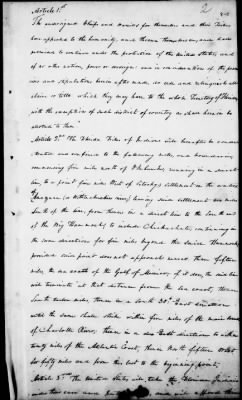 Article 1st
The undersigned Chiefs and Warriors for themselves and their Tribes
have appealed to the humanity, and thrown themselves on, and have
promised to continue under the protection of the United States, and
of no other nation, power or sovereign and in consideration of the promis-
es and stipulations hereinafter made, do cede and relinquish all
claim or title which they may have to the whole Territory of Florida
with the exception of such district of country as shall herein be
allotted to them
Article 2nd The Florida Tribes of Indians will hereafter be concen-
trated and confined to the following metes and boundaries,
commencing five miles north of running in a direct
line, to a point five miles West of settlement on the waters
of
South of the line from thence in a direct line to the South end
of the Big Hammock, to include Chickuchate, continuing in
the same direction for five miles beyond the said Hammock,
provided said point does not approach nearer than fifteen
miles, the sea coast of the Gulf of Mexico, if it does, the said line
will terminate at that distance from the sea coast, thence
South twelve miles, thence in a South 30° East direction
until the same shall strike within five miles of the main branch
of Charlotte River, thence in a due East direction to within
twenty miles of the Atlantic Coast, thence North fifteen West
for fifty miles and from this last to the beginning point,
Article 3rd The United States will take the Florida Indians
under their care and